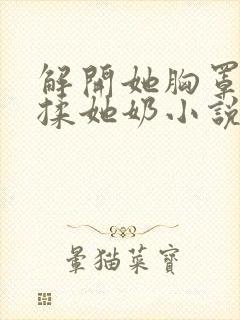 解開她胸罩
揉她奶小說
暈猫菜寶